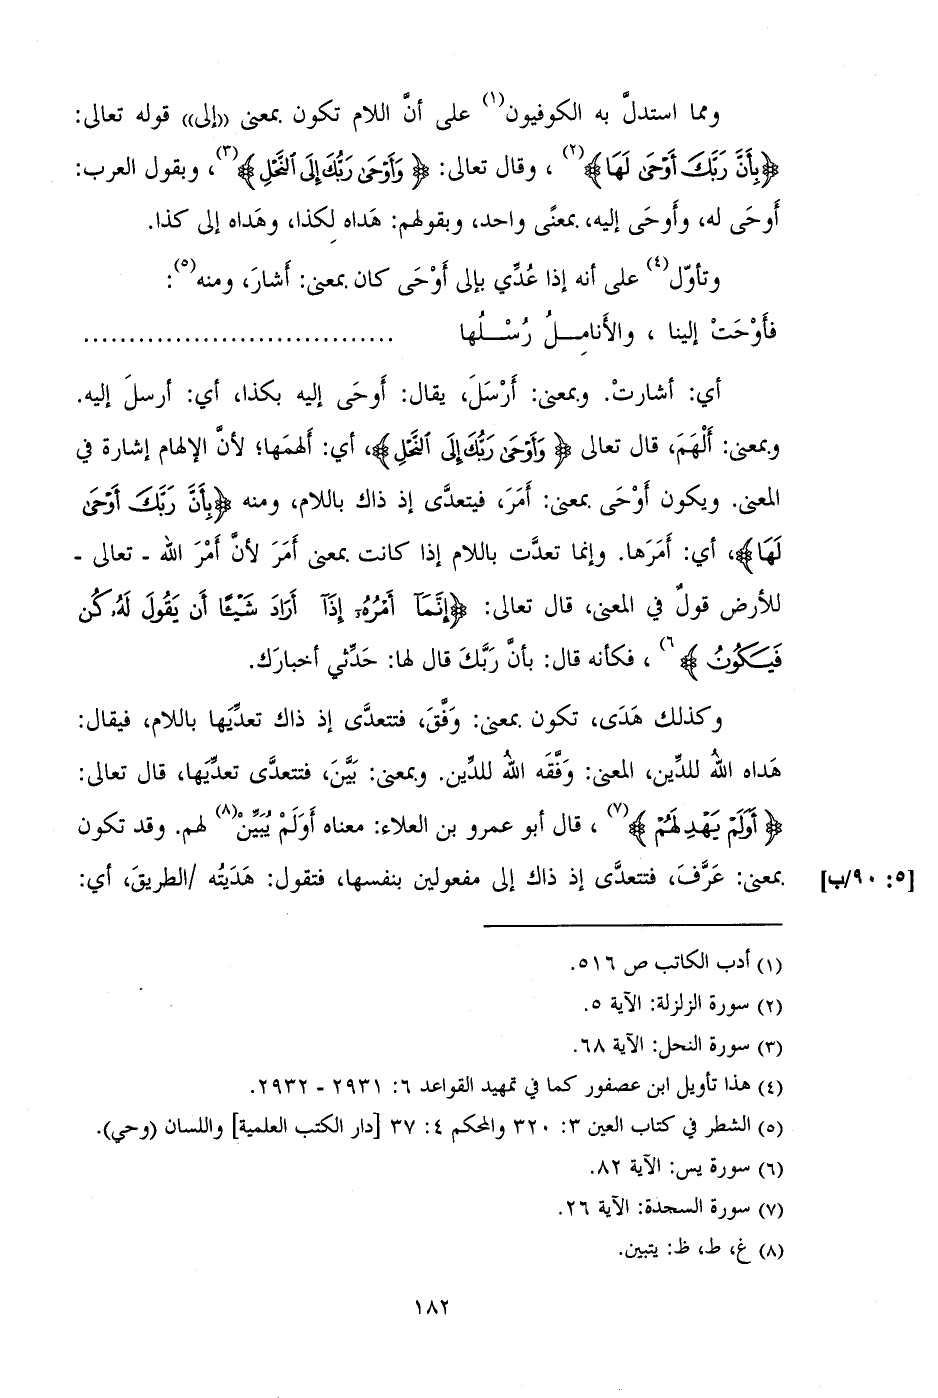 ومما استدلَّ به الكوفيون(١) على أنَّ اللام تكون بمعنى ((إلى)) قوله تعالى:
﴿بِأَنَّ رَبَّكَ أَوْحَىٰ لَهَا﴾(٢) ، وقال تعالى: ﴿وَأَوْحَىٰ رَبُّكَ إِلَى ٱلنَّحْلِ﴾(٣)، وبقول العرب:
أَوحَى له، وأَوحَى إليه، بمعنًى واحد، وبقولهم: هَداه لِكذا، وهَداه إلى كذا.
وتأوّل(٤) على أنه إذا عُدِّي بإلى أَوْحَى كان بمعنى: أَشارَ، ومنه(٥):
فأَوْحَتْ إلينا ، والأَنامِلُ رُسْلُها ..................................
أي: أشارتْ. وبمعنى: أَرْسَلَ، يقال: أَوحَى إليه بكذا، أي: أرسلَ إليه.
وبمعنى: أَلْهَمَ، قال تعالى ﴿وَأَوْحَىٰ رَبُّكَ إِلَى ٱلنَّحْلِ﴾، أي: أَلهمَها؛ لأنَّ الإلهام إشارة في
المعنى. ويكون أَوْحَى بمعنى: أَمَرَ، فيتعدَّى إذ ذاك باللام، ومنه ﴿بِأَنَّ رَبَّكَ أَوْحَىٰ
لَهَا﴾، أي: أَمَرَها. وإنما تعدَّت باللام إذا كانت بمعنى أَمَرَ لأنَّ أَمْرَ الله - تعالى -
للأرض قولٌ في المعنى، قال تعالى: ﴿إِنَّمَآ أَمْرُهُۥٓ إِذَآ أَرَادَ شَيْـًٔا أَن يَقُولَ لَهُۥ كُن
فَيَكُونُ﴾٦) ، فكأنه قال: بأنَّ رَبَّكَ قال لها: حَدِّثي أخبارَك.
وكذلك هَدَى، تكون بمعنى: وَفَّقَ، فتتعدَّى إذ ذاك تعدِّيَها باللام، فيقال:
هَداه اللهُ للدِّين، المعنى: وَفَّقَه اللهُ للدِّين. وبمعنى: بَيَّنَ، فتتعدَّى تعدِّيَها، قال تعالى:
﴿أَوَلَمْ يَهْدِ لَهُمْ﴾(٧) ، قال أبو عمرو بن العلاء: معناه أَوَلَمْ يُبَيِّنْ(٨) لهم. وقد تكون
[٥: ٩٠/ب] بمعنى: عَرَّفَ، فتتعدَّى إذ ذاك إلى مفعولين بنفسها، فتقول: هَدَيتُه /الطريقَ، أي:
(١) أدب الكاتب ص ٥١٦.
(٢) سورة الزلزلة: الآية ٥.
(٣) سورة النحل: الآية ٦٨.
(٤) هذا تأويل ابن عصفور كما في تمهيد القواعد ٦: ٢٩٣١ - ٢٩٣٢.
(٥) الشطر في كتاب العين ٣: ٣٢٠ والمحكم ٤: ٣٧ [دار الكتب العلمية] واللسان (وحي).
(٦) سورة يس: الآية ٨٢.
(٧) سورة السجدة: الآية ٢٦.
(٨) غ، ط، ظ: يتبين.
١٨٢